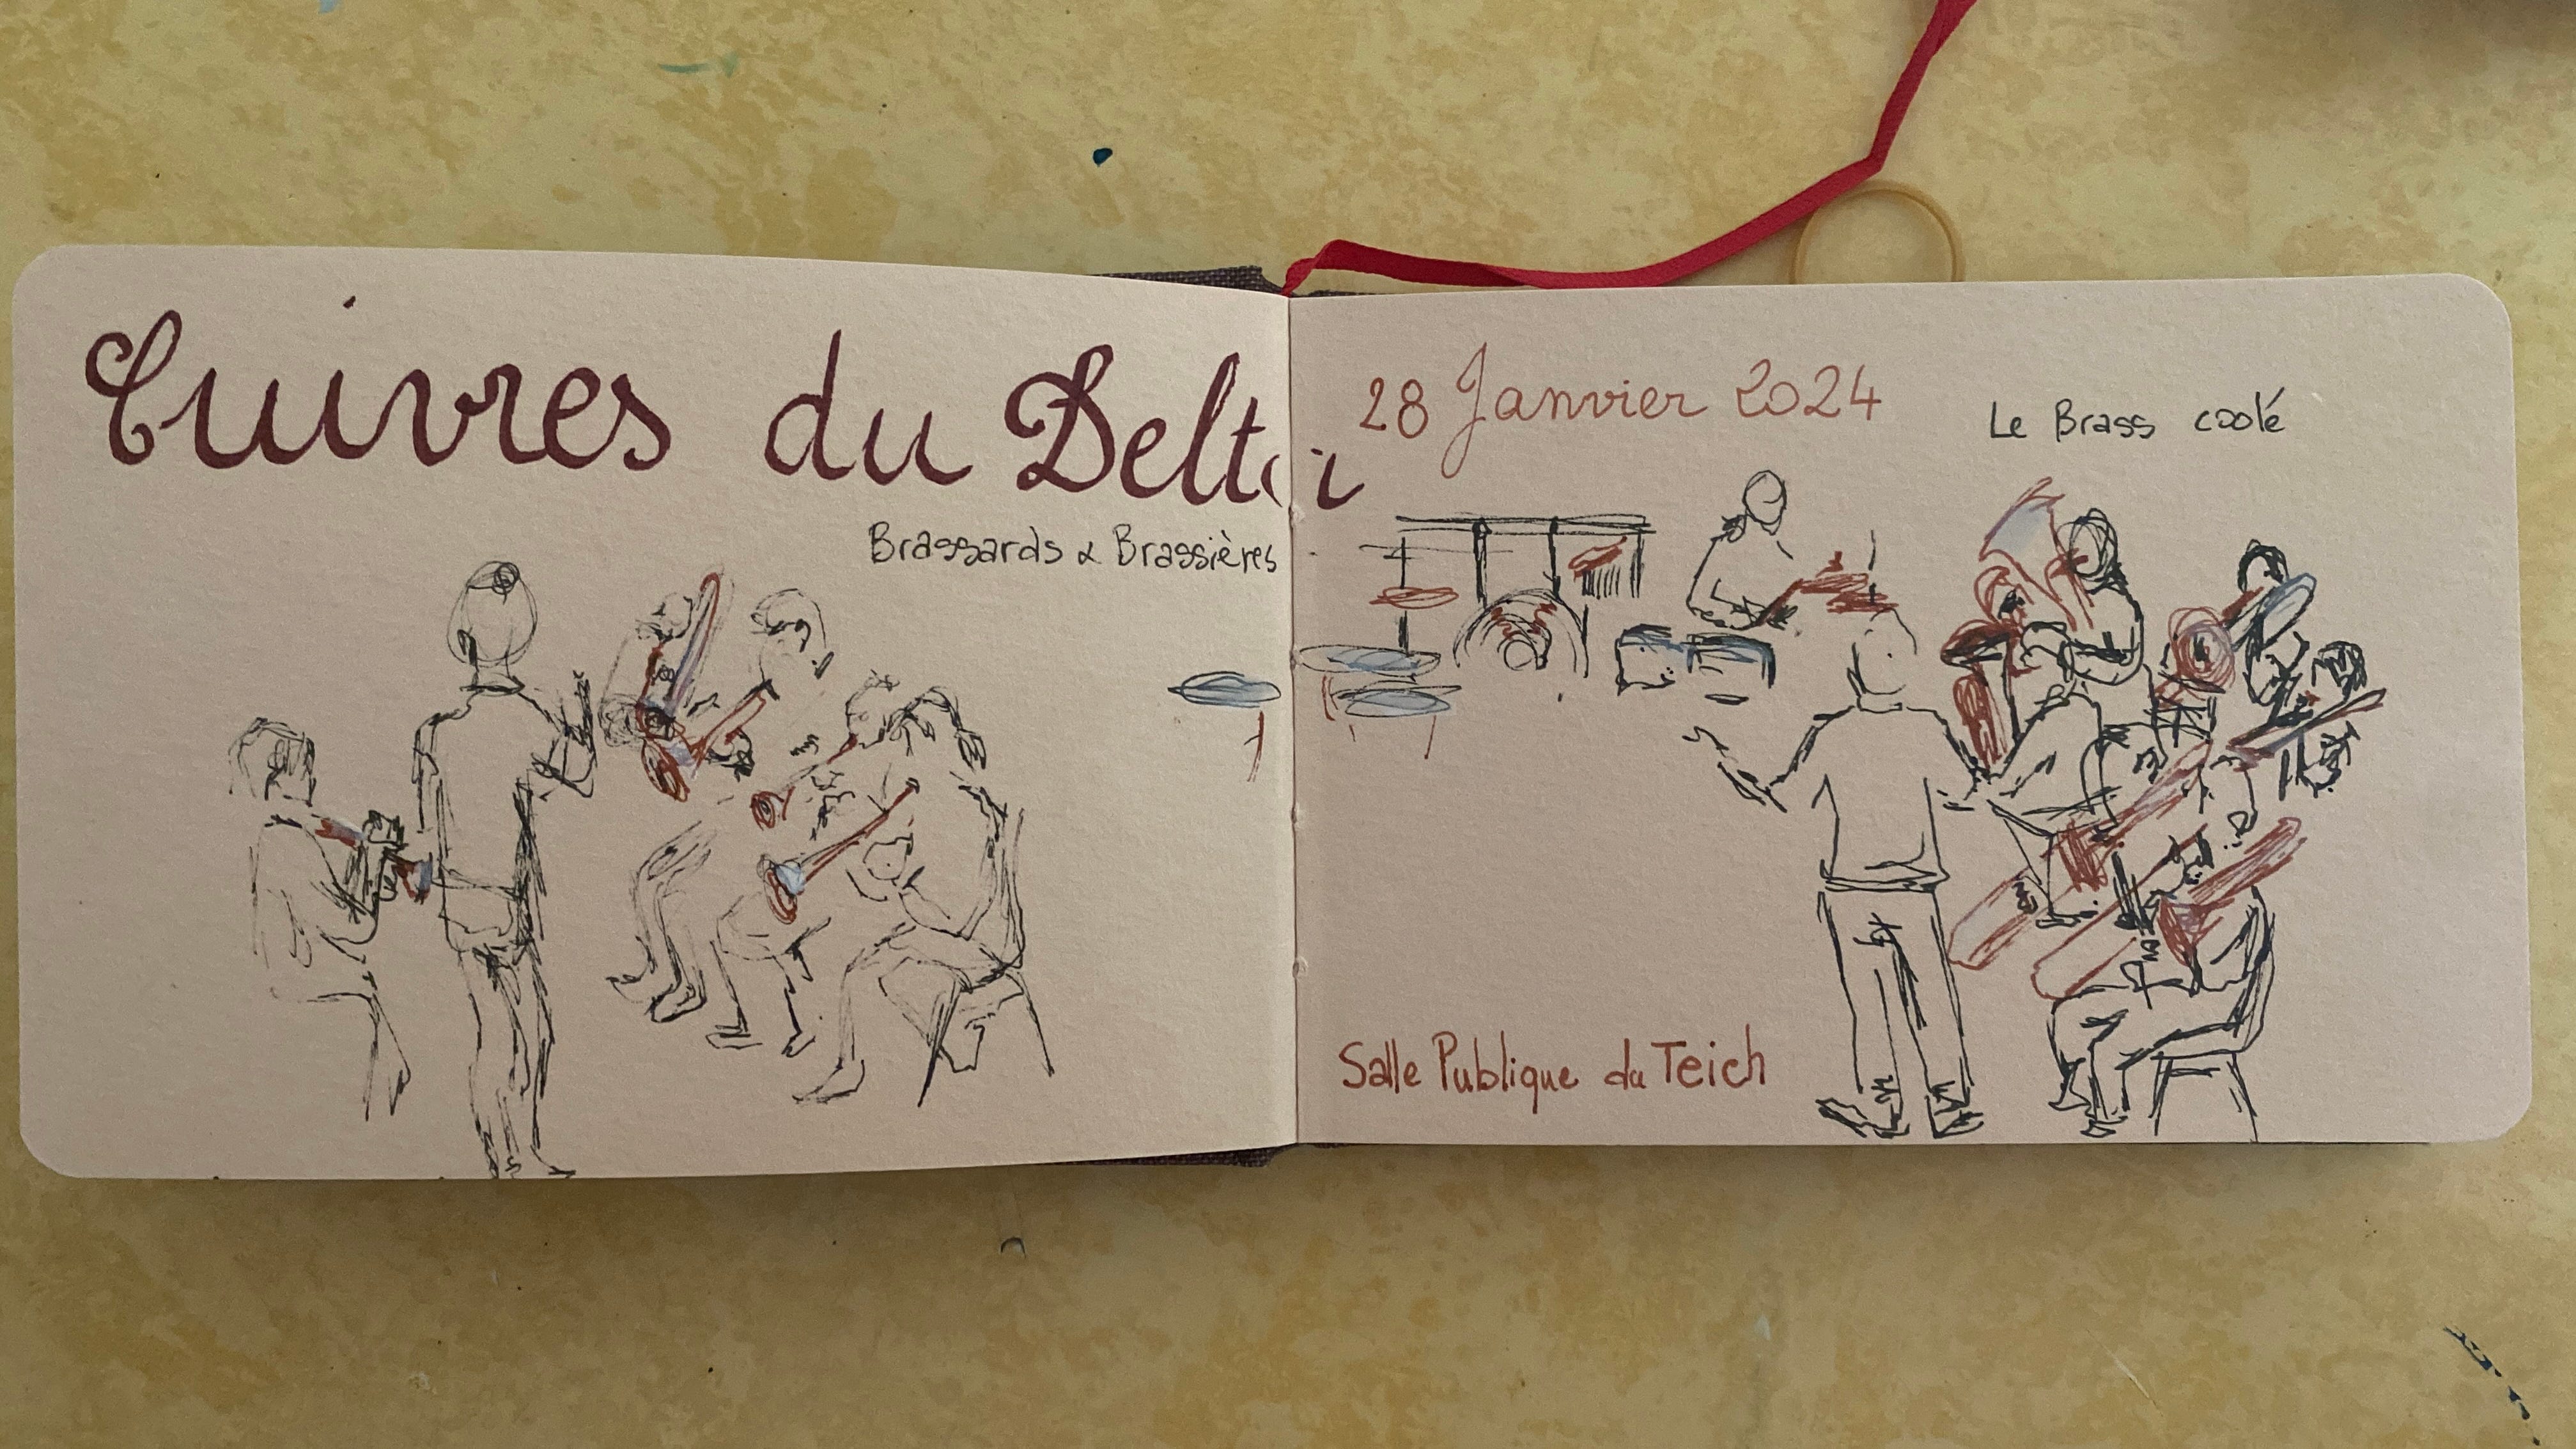 Cuivres du Delta
Brassards & Brassières
28 Janvier 2024
Le Brass coolé
Salle Publique du Teich